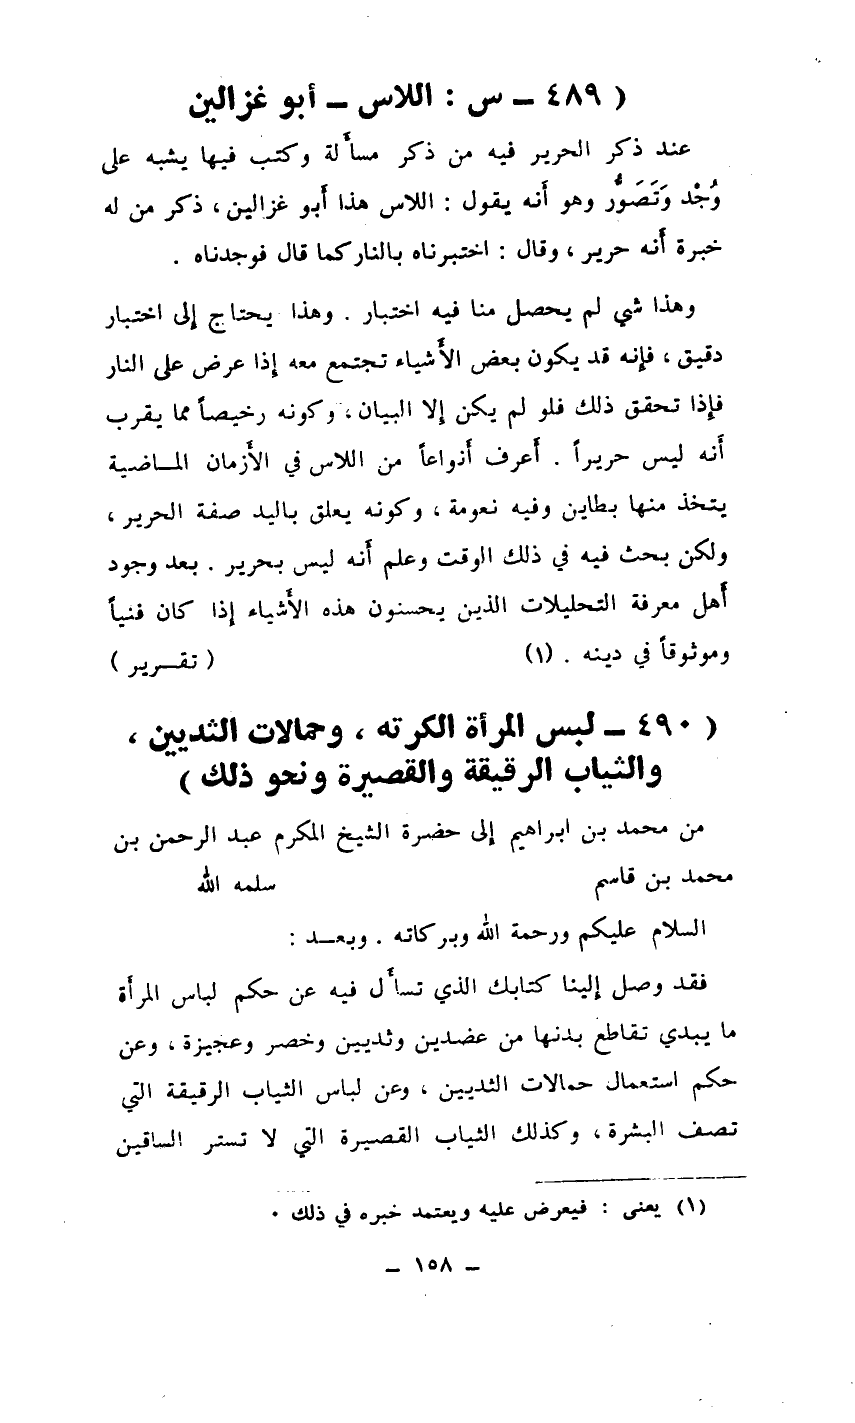 ( ٤٨٩ ــ س : اللاس ــ أبو غزالين
عند ذكر الحرير فيه من ذكر مسألة وكتب فيها يشبه على
وُجْد وَتَصَوُّر وهو أنه يقول : اللاس هذا أبو غزالين ، ذكر من له
خبرة أنه حرير ، وقال : اختبرناه بالنار كما قال فوجدناه .
وهذا شي لم يحصل منا فيه اختبار . وهذا يحتاج إلى اختبار
دقيق ، فإنه قد يكون بعض الأشياء تجتمع معه إذا عرض على النار
فإذا تحقق ذلك فلو لم يكن إلا البيان ، وكونه رخيصاً مما يقرب
أنه ليس حريراً . أعرف أنواعاً من اللاس في الأزمان المـاضية
يتخذ منها بطاين وفيه نعومة ، وكونه يعلق باليد صفة الحرير ،
ولكن بحث فيه في ذلك الوقت وعلم أنه ليس بحرير . بعد وجود
أهل معرفة التحليلات الذين يحسنون هذه الأشياء إذا كان فنياً
وموثوقاً في دينه . (١) ( تقـرير )
( ٤٩٠ ــ لبس المرأة الكرته ، وحمالات الثديين ،
والثياب الرقيقة والقصيرة ونحو ذلك )
من محمد بن ابراهيم إلى حضرة الشيخ المكرم عبد الرحمن بن
محمد بن قاسم سلمه الله
السلام عليكم ورحمة الله وبركاته . وبعـد :
فقد وصل إلينا كتابك الذي تسأل فيه عن حكم لباس المرأة
ما يبدي تقاطع بدنها من عضدين وثديين وخصر وعجيزة ، وعن
حكم استعمال حمالات الثديين ، وعن لباس الثياب الرقيقة التي
تصف البشرة ، وكذلك الثياب القصيرة التي لا تستر الساقين
(١) يعنى : فيعرض عليه ويعتمد خبره في ذلك .
ــ ١٥٨ ــ